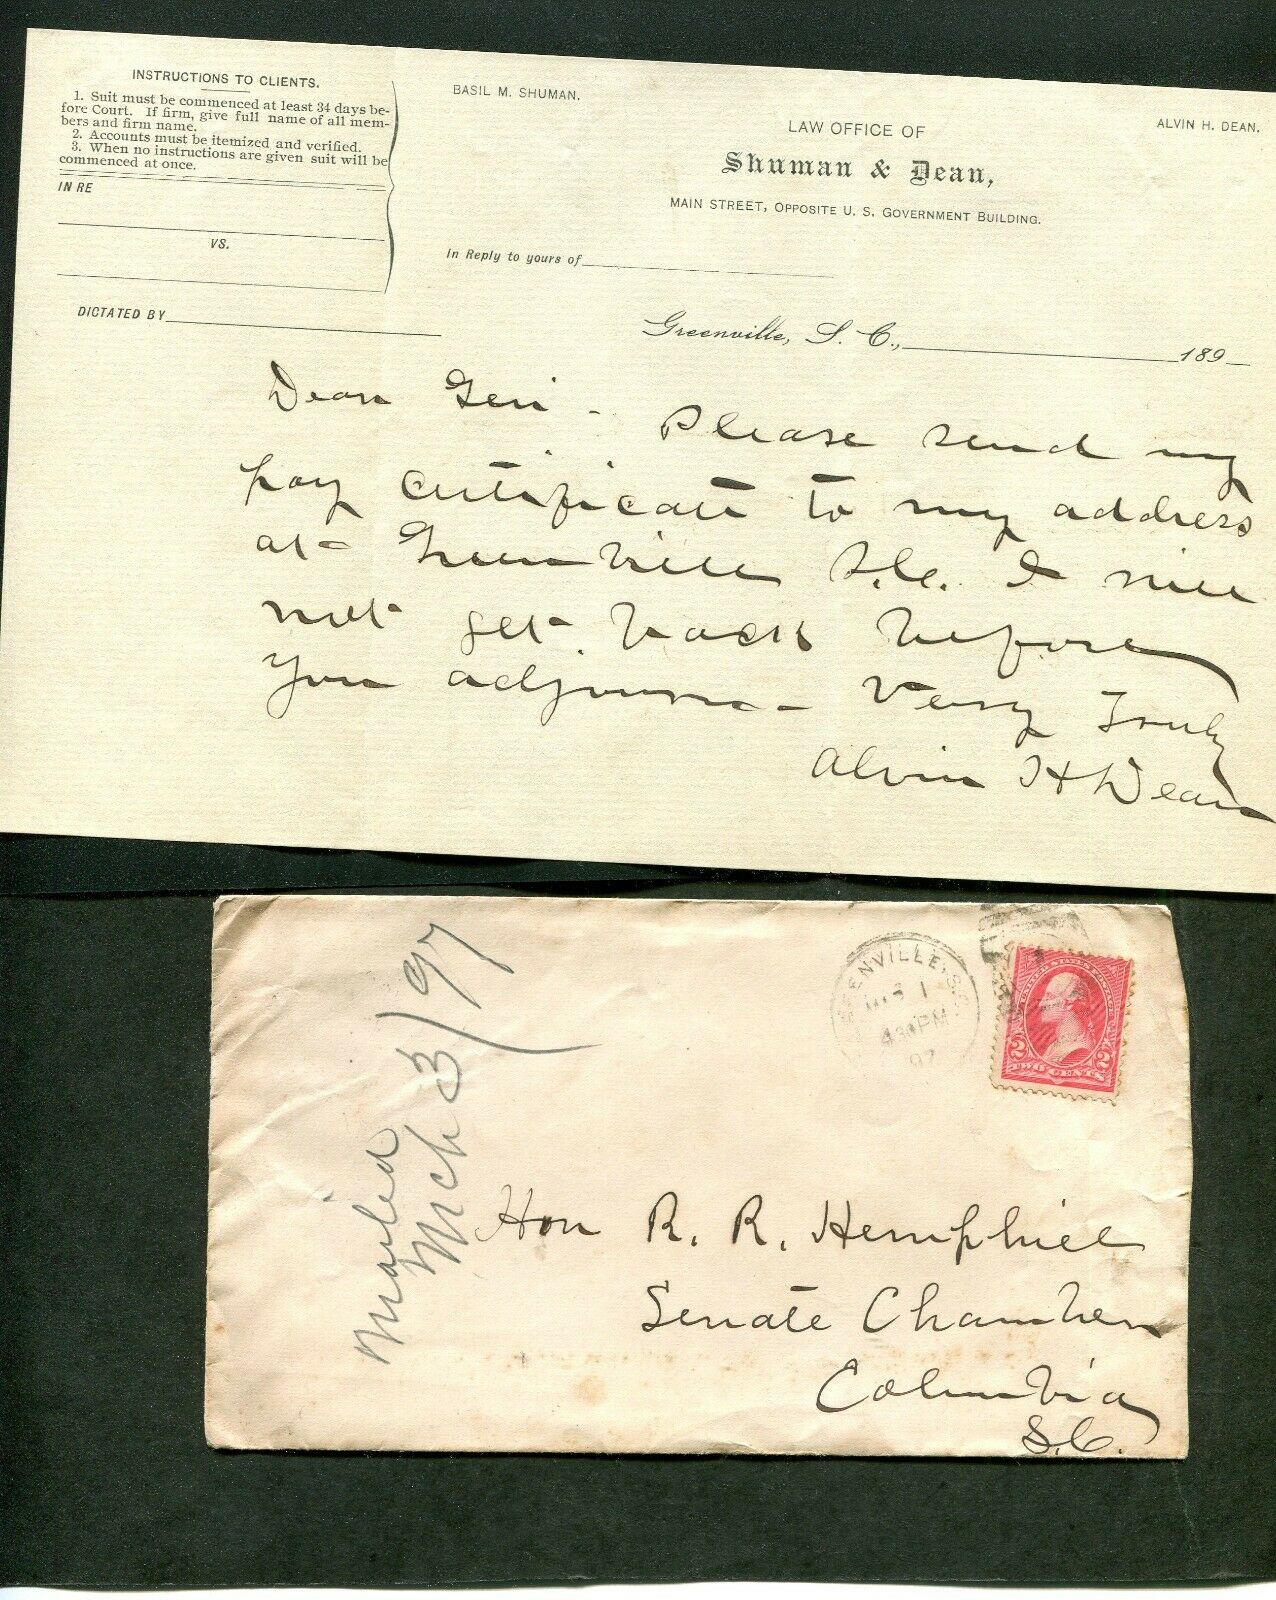 INSTRUCTIONS TO CLIENTS.
1. Suit must be commenced at least 34 days be-
fore Court. If firm, give full name of all mem-
bers and firm name.
2. Accounts must be itemized and verified.
3. When no instructions are given suit will be
commenced at once.
IN RE
VS.
DICTATED BY
BASIL M. SHUMAN.
ALVIN H. DEAN.
LAW OFFICE OF
Shuman & Dean,
MAIN STREET, OPPOSITE U. S. GOVERNMENT BUILDING.
In Reply to yours of
Greenville, S. C., 189
Dear Gen - Please send my
pay certificate to my address
at Greenville S.C. I will
not get back before
you adjourn - Very Truly
Alvin H Dean
Mailed
Mch 3/97
GREENVILLE, S.C.
1
430PM
97
UNITED STATES POSTAGE
2 2
TWO CENTS
Hon R. R. Hemphill
Senate Chamber
Columbia
S.C.